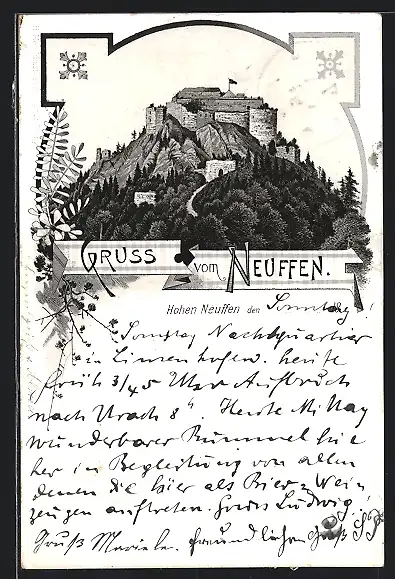 GRUSS
vom NEUFFEN.
Hohen Neuffen den Sonntag
Sonntag Nachtquartier
in Linsenhofen. heute
früh 3/4 5 Uhr Aufbruch
nach Urach 8". Heute Mittag
wunderbarer Bummel hie
her in Begleitung von allen
denen die hier als Bier & Wein
zeugen auftreten. Ludwig.
Gruß Marie freundlichen Gruß